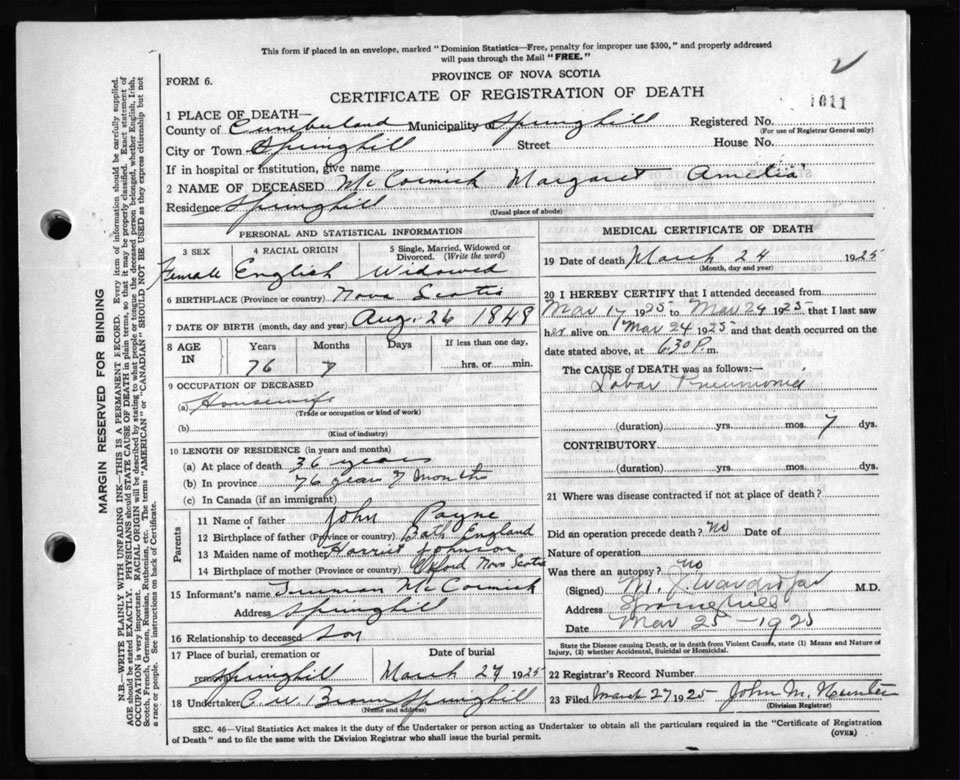 This form if placed in an envelope, marked "Dominion Statistics—Free, penalty for improper use $300," and properly addressed
will pass through the Mail "FREE."
FORM 6.
PROVINCE OF NOVA SCOTIA
CERTIFICATE OF REGISTRATION OF DEATH
1011
1 PLACE OF DEATH—
County of Cumberland Municipality of Springhill Registered No.
(For use of Registrar General only)
City or Town Springhill Street House No.
If in hospital or institution, give name
2 NAME OF DECEASED McCormick Margaret Amelia
Residence Springhill
(Usual place of abode)
PERSONAL AND STATISTICAL INFORMATION
3 SEX 4 RACIAL ORIGIN 5 Single, Married, Widowed or
Divorced. (Write the word)
Female English Widowed
6 BIRTHPLACE (Province or country) Nova Scotia
7 DATE OF BIRTH (month, day and year) Aug. 26 1848
8 AGE IN Years Months Days If less than one day,
76 7 hrs. or min.
9 OCCUPATION OF DECEASED
(a) Housewife
(Trade or occupation or kind of work)
(b)
(Kind of industry)
10 LENGTH OF RESIDENCE (in years and months)
(a) At place of death 36 years
(b) In province 76 years 7 months
(c) In Canada (if an immigrant)
Parents
11 Name of father John Payne
12 Birthplace of father (Province or country) Bath England
13 Maiden name of mother Harriet Johnson
14 Birthplace of mother (Province or country) Oxford Nova Scotia
15 Informant's name Truman McCormick
Address Springhill
16 Relationship to deceased Son
17 Place of burial, cremation or Date of burial
removal Springhill March 27 1925
18 Undertaker C. W. Brown Springhill
(Name and address)
MEDICAL CERTIFICATE OF DEATH
19 Date of death March 24 1925
(Month, day and year)
20 I HEREBY CERTIFY that I attended deceased from
Mar 17 1925 to Mar 24 1925 that I last saw
her alive on Mar 24 1925 and that death occurred on
date stated above, at 6.30 P. m.
The CAUSE of DEATH was as follows:—
Lobar Pneumonia
(duration) yrs. mos. 7 dys.
CONTRIBUTORY
(duration) yrs. mos. dys.
21 Where was disease contracted if not at place of death?
Did an operation precede death? No Date of
Nature of operation
Was there an autopsy? No
(Signed) M.D.
Address Springhill
Date Mar 25—1925
State the Disease causing Death, or in death from Violent Causes, state (1) Means and Nature of
Injury, (2) whether Accidental, Suicidal or Homicidal.
22 Registrar's Record Number
23 Filed March 27 1925 John M. Hunter
(Division Registrar)
SEC. 46—Vital Statistics Act makes it the duty of the Undertaker or person acting as Undertaker to obtain all the particulars required in the "Certificate of Registration
of Death" and to file the same with the Division Registrar who shall issue the burial permit.
(OVER)
MARGIN RESERVED FOR BINDING
N.B.—WRITE PLAINLY WITH UNFADING INK—THIS IS A PERMANENT RECORD. Every item of information should be carefully supplied.
AGE should be stated EXACTLY. PHYSICIANS should STATE CAUSE OF DEATH in plain terms, so that it may be properly classified. Exact statement of
OCCUPATION is very important. RACIAL ORIGIN will be described by stating to what people or tongue the deceased person belonged, whether English, Irish,
Scotch, French, German, Russian, Ruthenian, etc. The terms "AMERICAN" or "CANADIAN" SHOULD NOT BE USED as they express citizenship but not
a race or people. See instructions on back of Certificate.